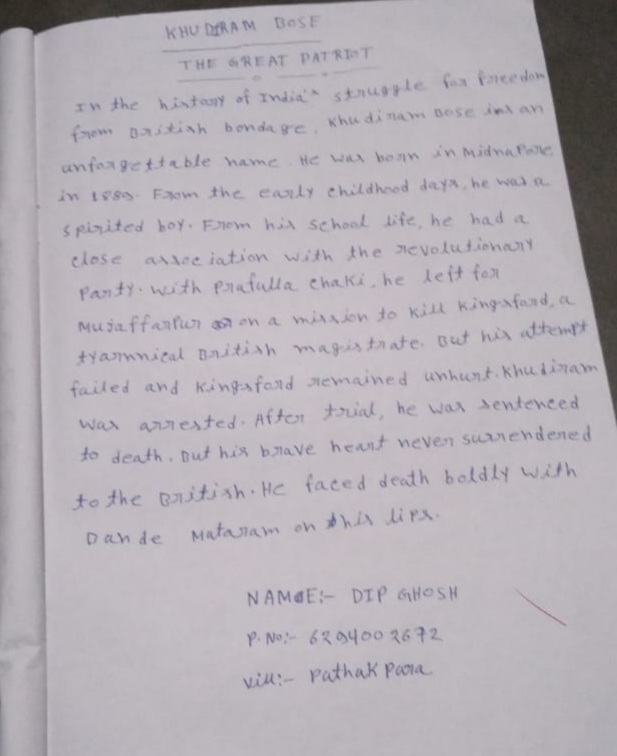 KHUDIRAM BOSE
THE GREAT PATRIOT
In the history of India's struggle for freedom
from British bondage, Khudiram Bose is an
unforgettable name. He was born in Midnapore
in 1889. From the early childhood days, he was a
spirited boy. From his school life, he had a
close association with the revolutionary
Party. With Prafulla Chaki, he left for
Mujaffarpur on a mission to kill Kingsford, a
tyarnnical British magistrate. But his attempt
failed and Kingsford remained unhurt. Khudiram
was arrested. After trial, he was sentenced
to death. But his brave heart never surrendered
to the British. He faced death boldly with
Bande Mataram on his lips.
NAME:- DIP GHOSH
P. No:- 6294002672
Vill:- Pathak Para